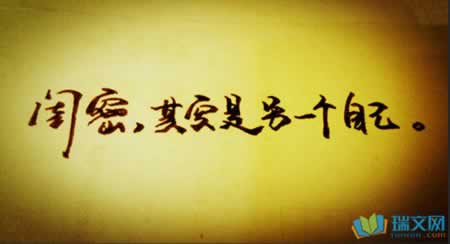 闺密,其实是另一个自己。
瑞文网